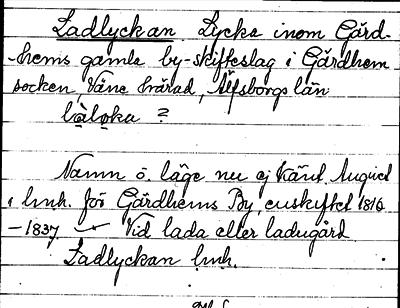 Ladlyckan Lycka inom Gärd-
-hems gamla by-skifteslag i Gärdhem
socken Väne härad, Älfsborgs län
?
Namn o. läge nu ej känd.
i lmh. för Gärdhems By, enskiftet 1816
-1837 Vid lada eller ladugård
Ladlyckan lmh.